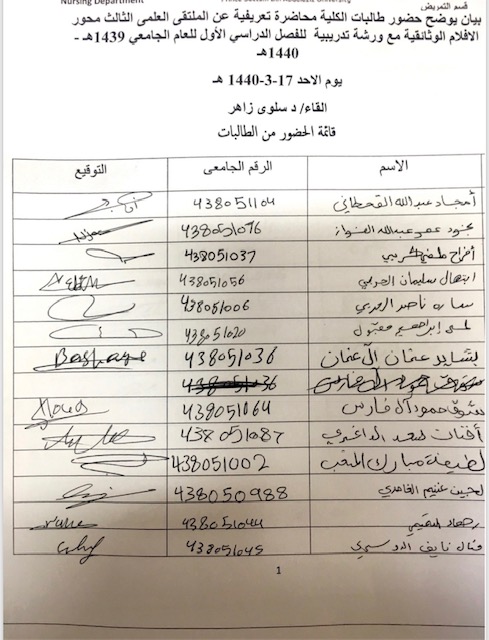 قسم التمريض
Nursing Department
بيان يوضح حضور طالبات الكلية محاضرة تعريفية عن الملتقى العلمى الثالث محور
الافلام الوثائقية مع ورشة تدريبية للفصل الدراسي الأول للعام الجامعي 1439هـ -
1440هـ
يوم الاحد 17-3-1440 هـ
القاء/ د سلوى زاهر
قائمة الحضور من الطالبات
الاسم الرقم الجامعى التوقيع
أمجاد عبدالله القحطاني 438051104
عبدالله 438051076
أفراح 438051037
ابتهال سليمان 438051056
ساره ناصر 438051006
لمى إبراهيم مقبول 438051020
بشاير عثمان آل عثمان 438051036 Bashaye
438051036
شوق حمود آل فارس 438051064
أفنان 438051087
لطيفة مبارك 438051002
لجين غنيم الغامدي 438050988
رهف 438051044
منال نايف الدوسري 438051045
1